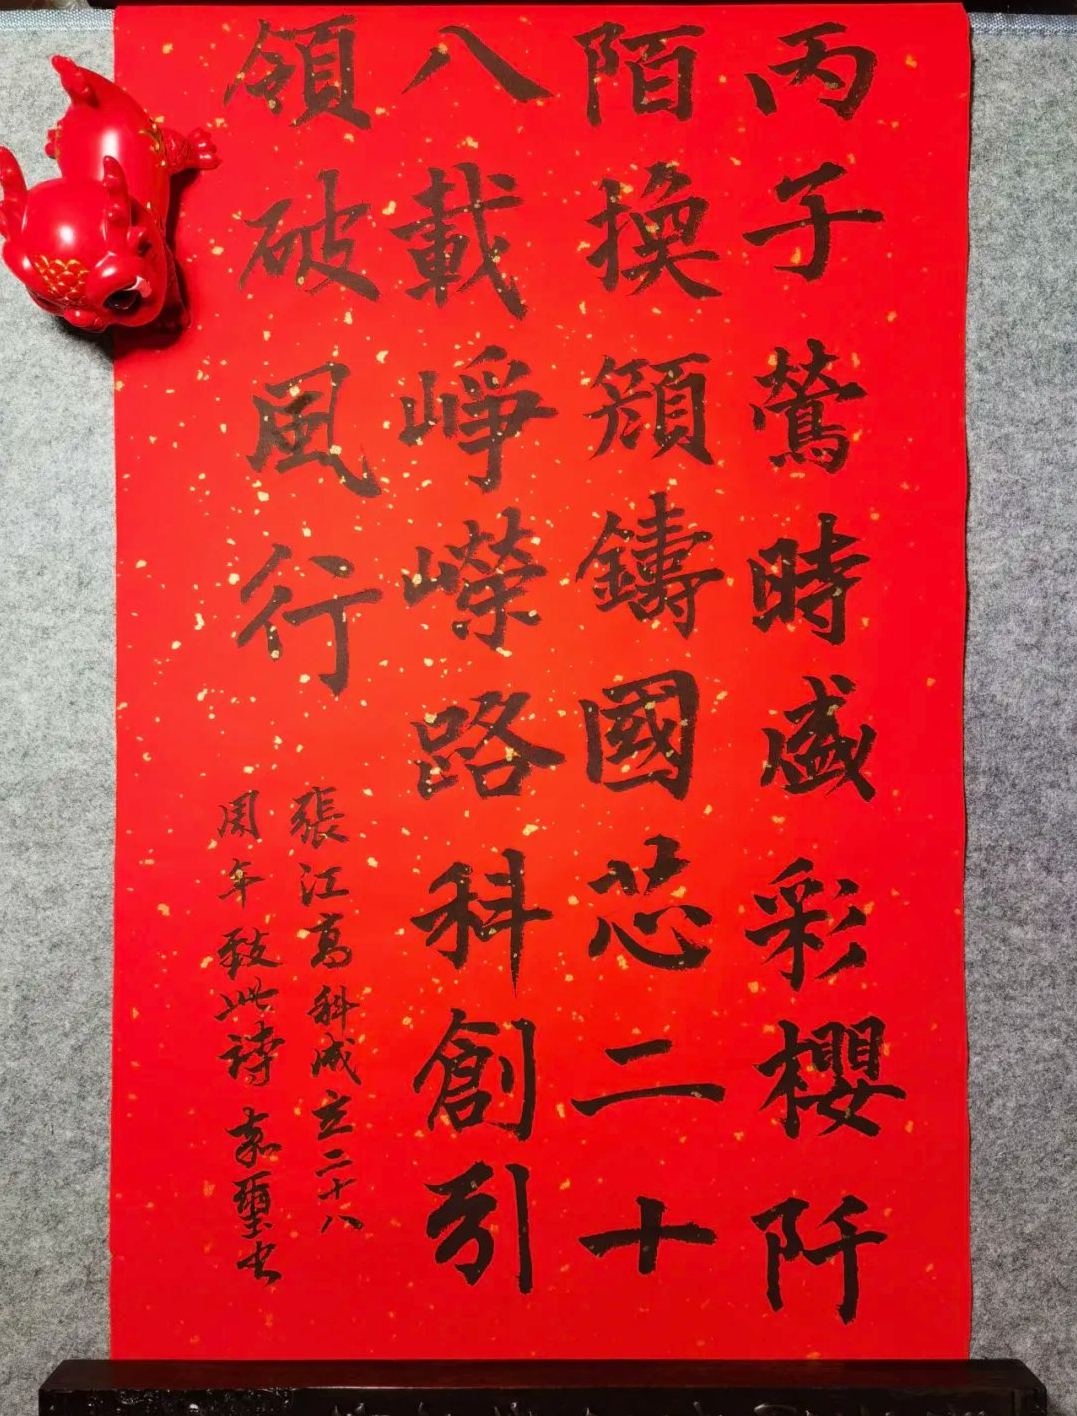 丙子鶯時盛彩櫻阡
陌換頹鑄國芯二十
八載崢嶸路科創引
領破風行
張江高科成立二十八
周年致此詩嘉璽書